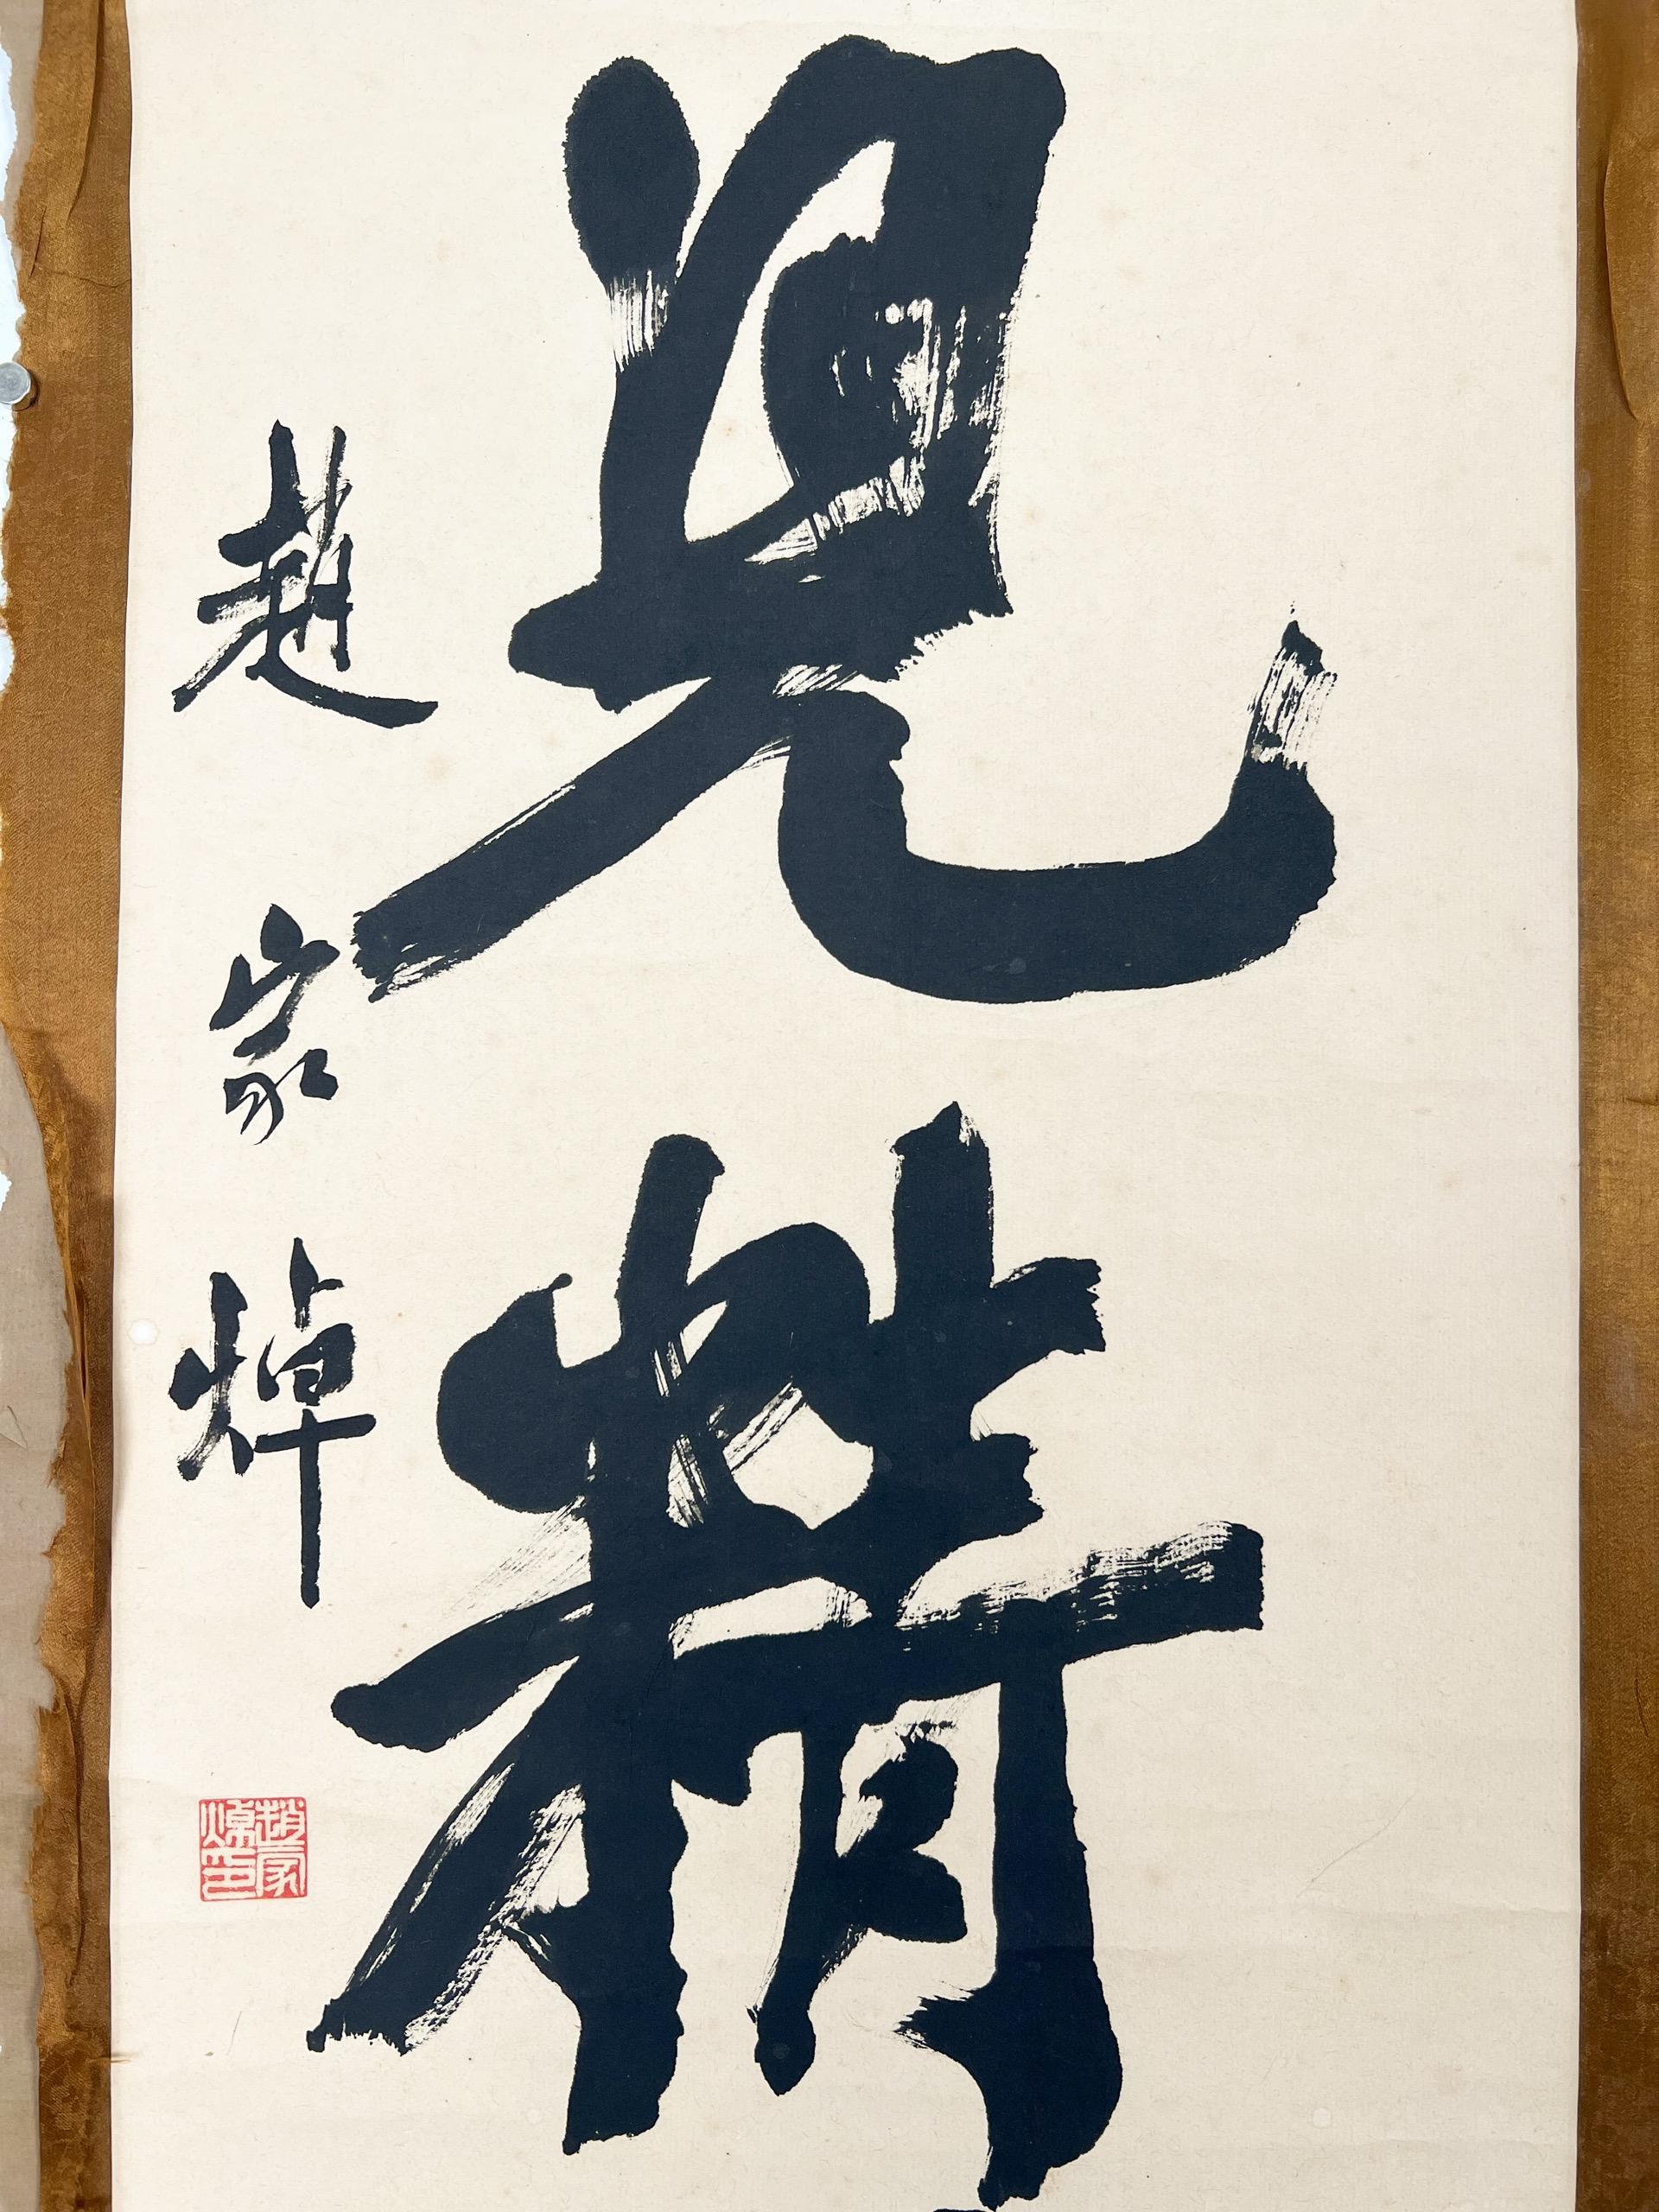 見精
趙家焯
趙家焯印